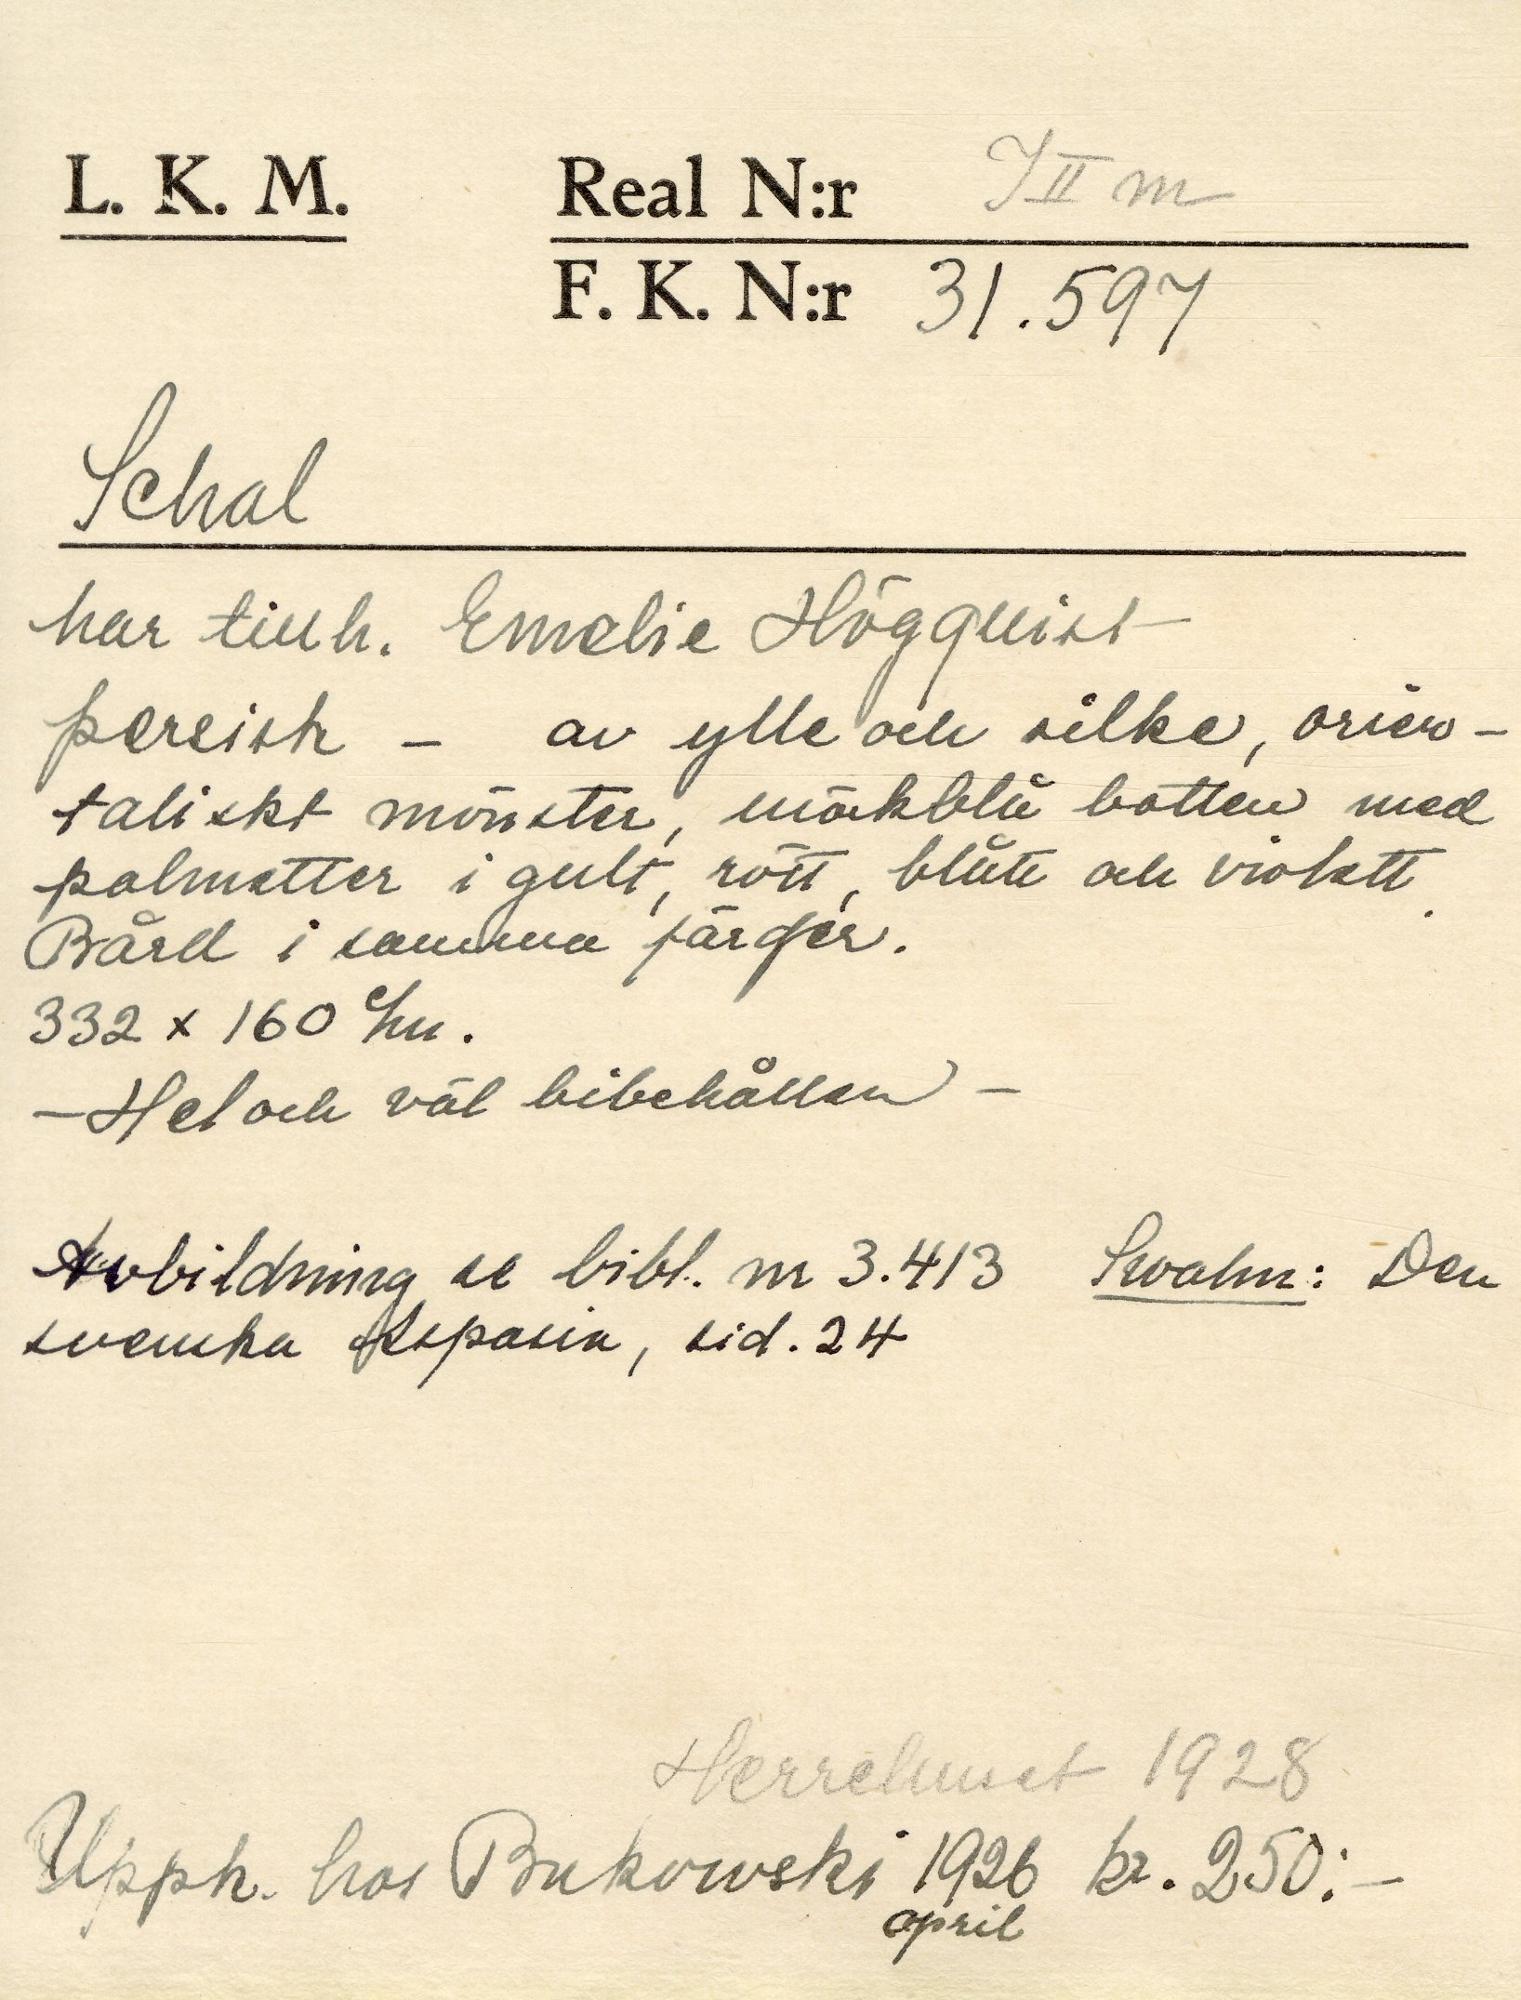 L. K. M.
Real N:r I II m
F. K. N:r 31.597
Schal
har tillh. Emelie Högqvist
persisk – av ylle och silke, orien-
taliskt mönster, mörkblå botten med
palmetter i gult, rött, blått och violett.
Bård i samma färger.
332 x 160 cm.
– Hel och väl bibehållen –
Avbildning se bibl. nr 3.413 Svahn: Den
svenska Aspasia, sid. 24
Herrehuset 1928
Upph. hos Bukowski 1926 kr. 250:–
april